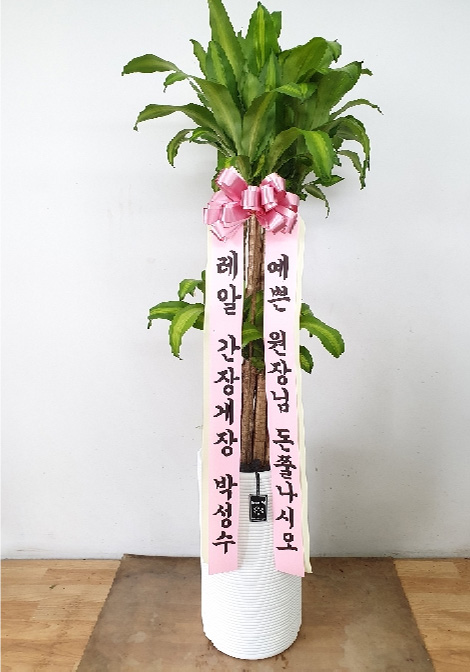 예쁜 원장님 돈쭐나시모
레알 간장게장 박성수